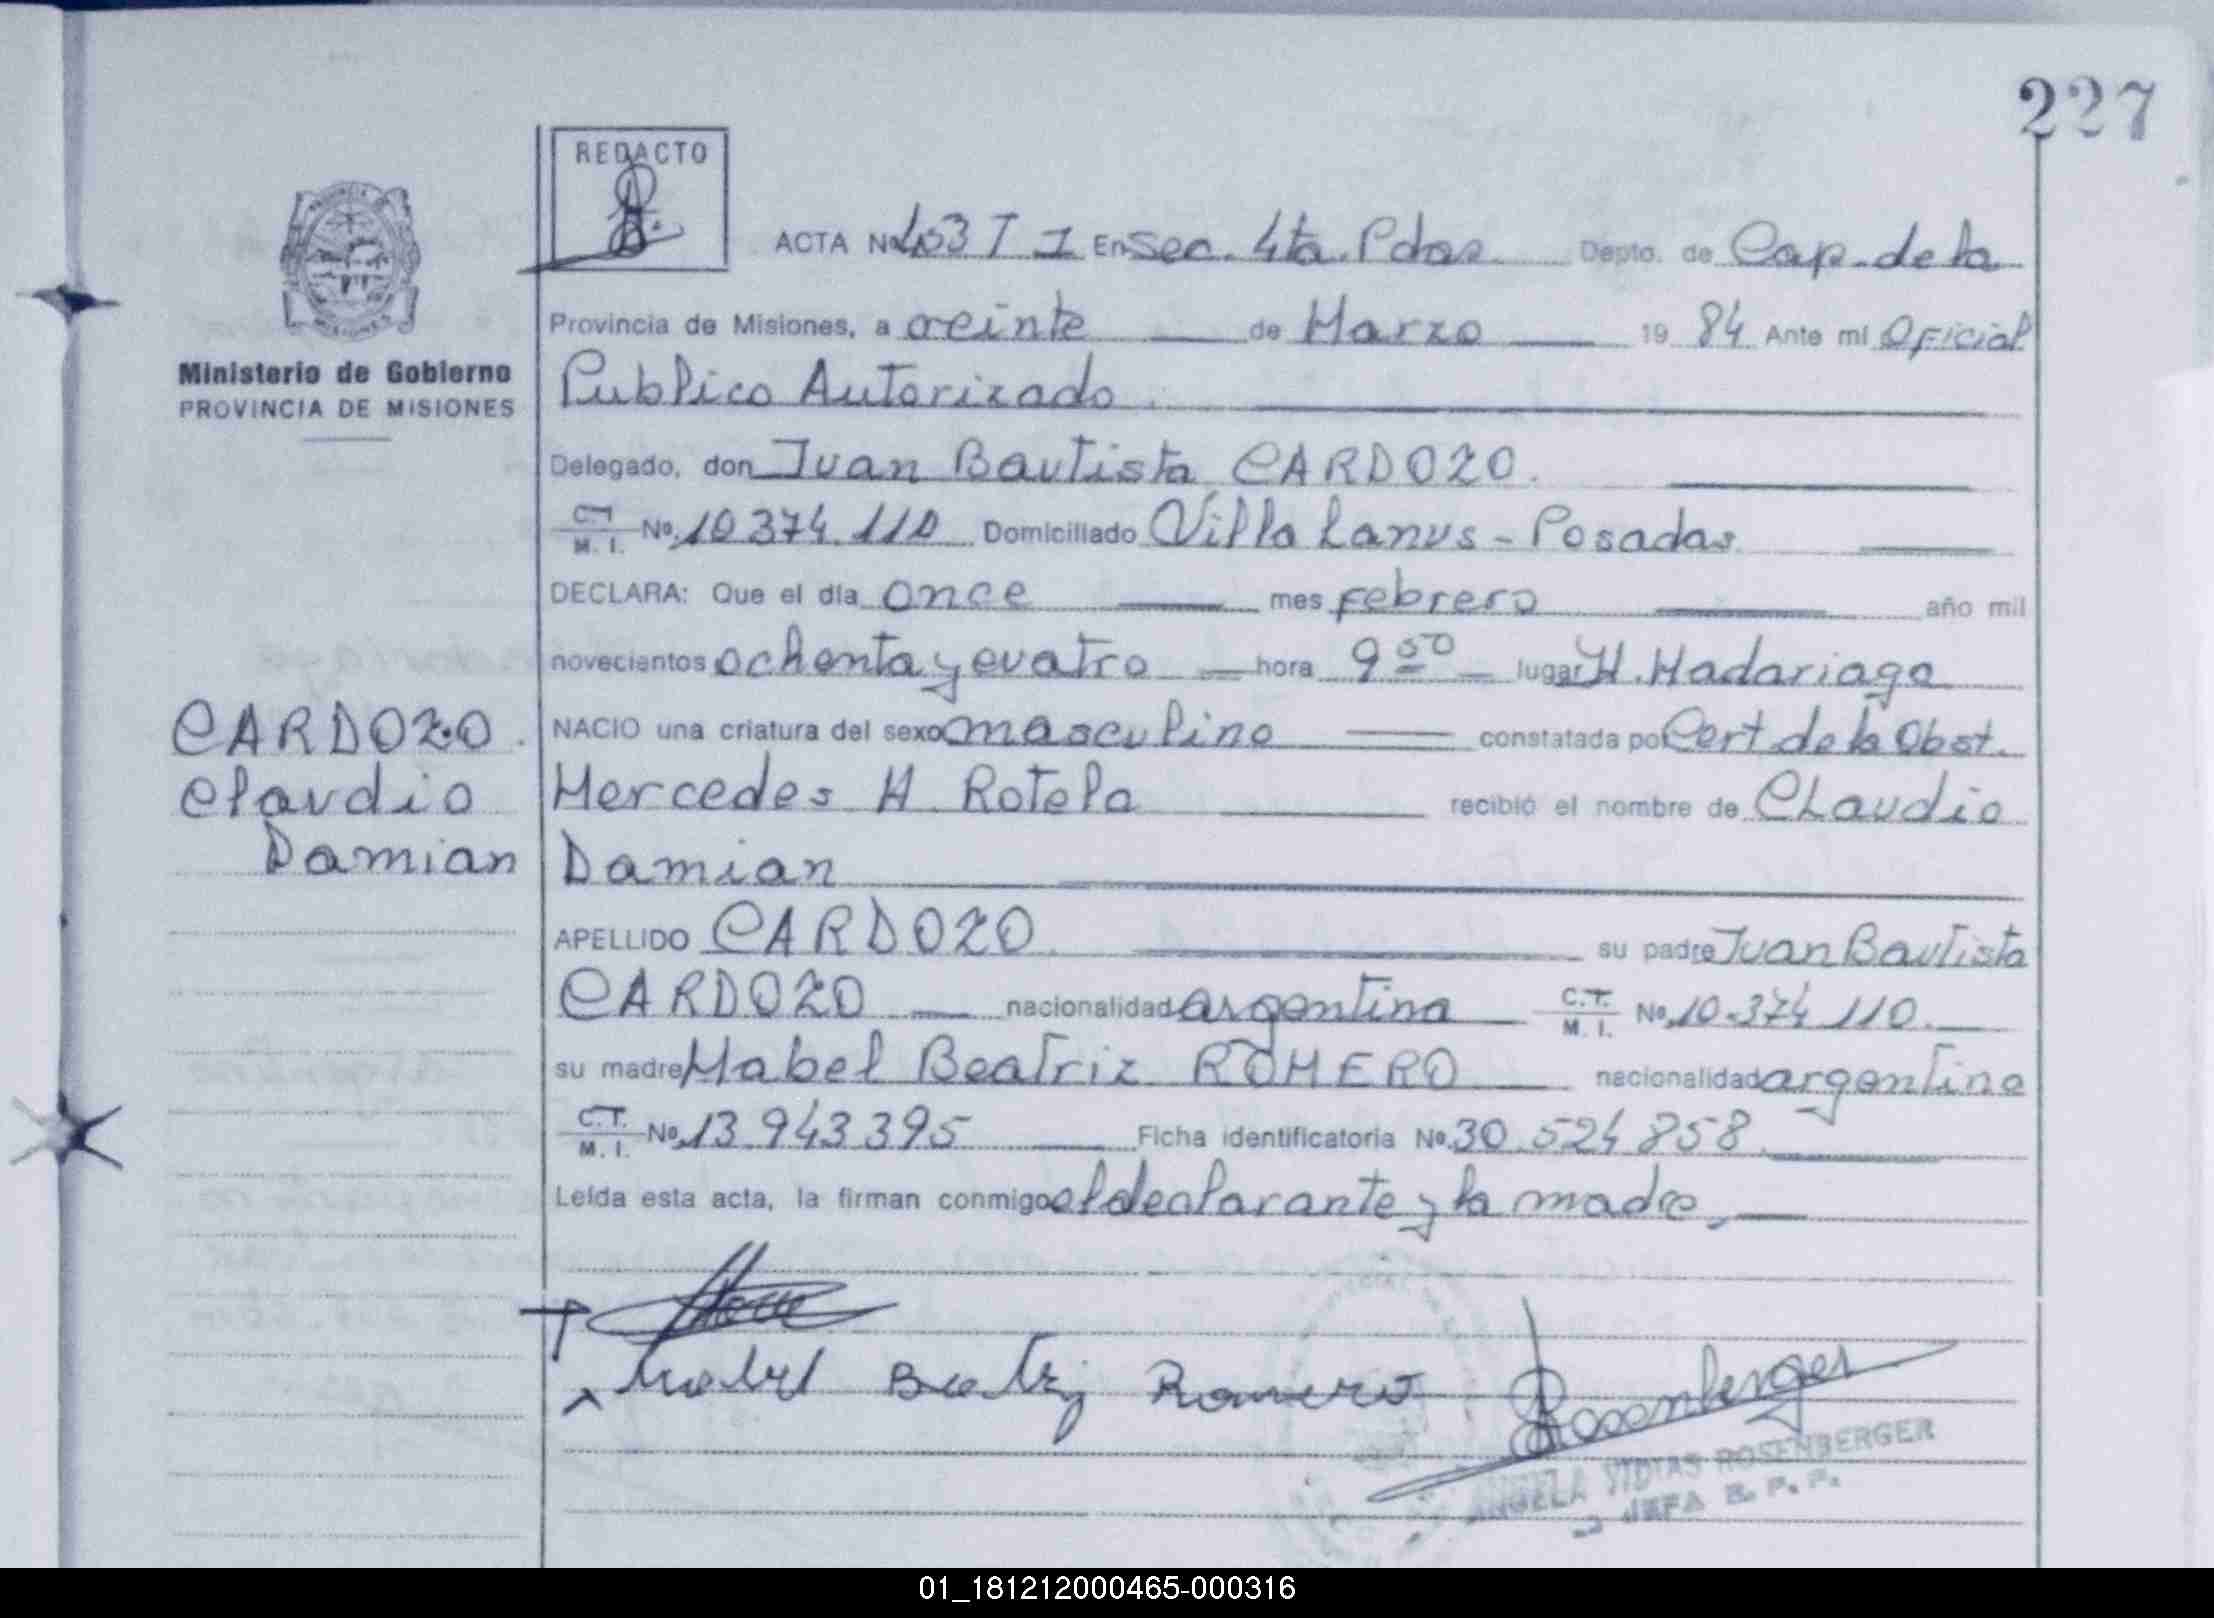 227
REDACTO
ACTA No. 403 T I En Sec. 4ta. Pdas. Depto. de Cap. de la
Provincia de Misiones, a veinte de Marzo 19 84 Ante mi Oficial
Ministerio de Gobierno
PROVINCIA DE MISIONES
Publico Autorizado
Delegado, don Juan Bautista CARDOZO.
C.I. M. I. No. 10 374 110 Domiciliado Villa Lanus - Posadas
DECLARA: Que el día once mes febrero año mil
novecientos ochenta y cuatro hora 9 50 lugar H. Madariaga
CARDOZO
Claudio
Damian
NACIO una criatura del sexo masculino constatada por Cert. de la Obst.
Mercedes H. Rotela recibió el nombre de CLaudio
Damian
APELLIDO CARDOZO su padre Juan Bautista
CARDOZO nacionalidad argentina C.T. M. I. No. 10.374 110
su madre Mabel Beatriz ROMERO nacionalidad argentina
C.T. M. I. No. 13 943 395 Ficha identificatoria No. 30 524 858
Leída esta acta, la firman conmigo el declarante y la madre,
Mabel Beatriz Romero Rosenberger
ANGELA VIDIAS ROSENBERGER
JEFA
01_181212000465-000316